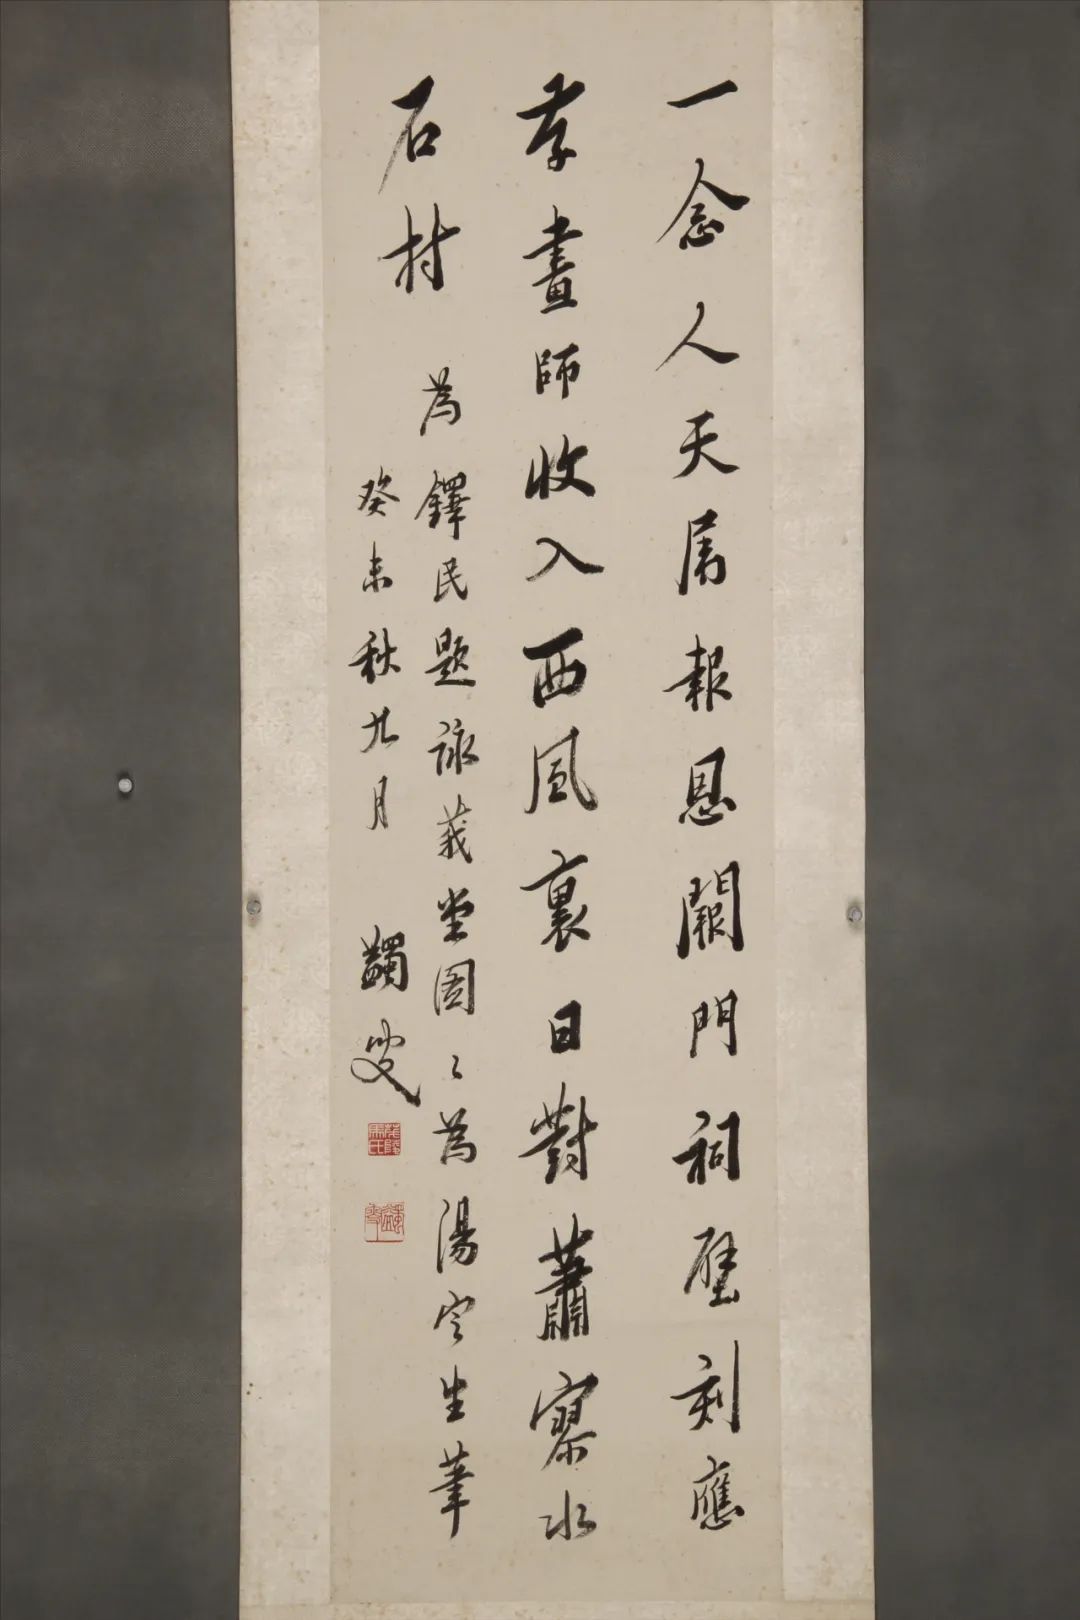 一念人天屬報恩闕門祠壁刻應
存畫師收入西風裏日對蕭寥水
石村
為鐸民題詠莪堂圖〻為湯定生筆
癸未秋九月 蠲叟